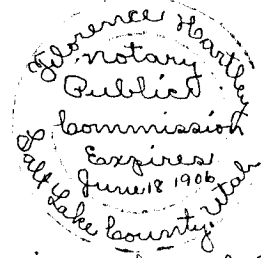 Florence Hartley
Notary
Public
Commission
Expires
June 18 1906
Salt Lake County, Utah